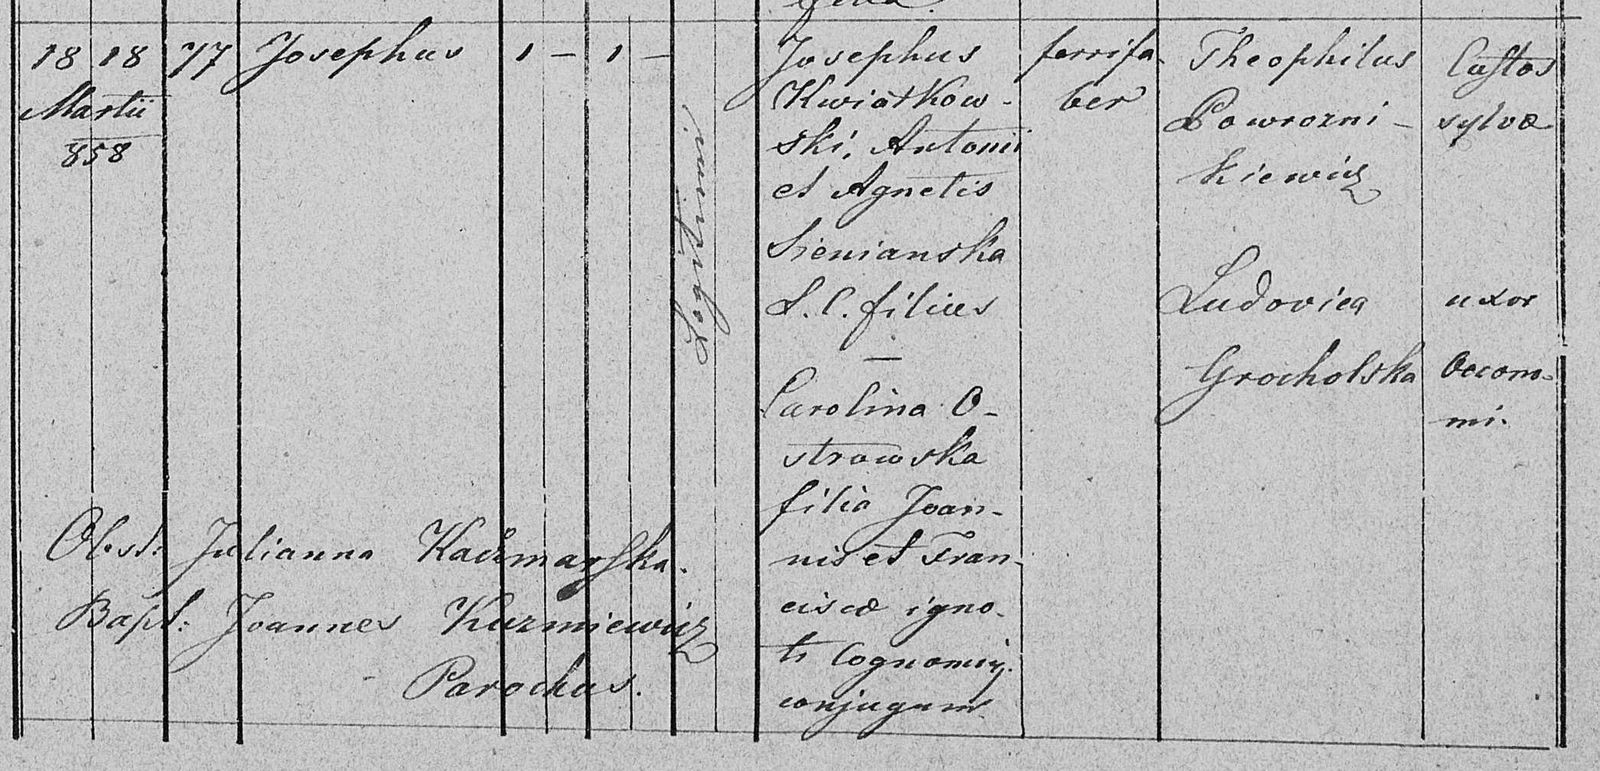 18 18 77 Josephus 1 — 1 —
Martii
858
Legitimi
Josephus
Kwiatkow-
ski, Antonii
et Agnetis
Sienianska
L. C. filius
—
Carolina O-
strowska
filia Joan-
nis et Fran-
ciscæ igno-
ti Cognomin.
conjugum
ferrifa-
ber
Theophilus
Powrozni-
kiewicz
Ludovica
Grocholska
Custos
sylvæ
uxor
Oeconomi.
Obst: Julianna Kaczmarska.
Bapt: Joannes Kuzmiewicz
Parochus.